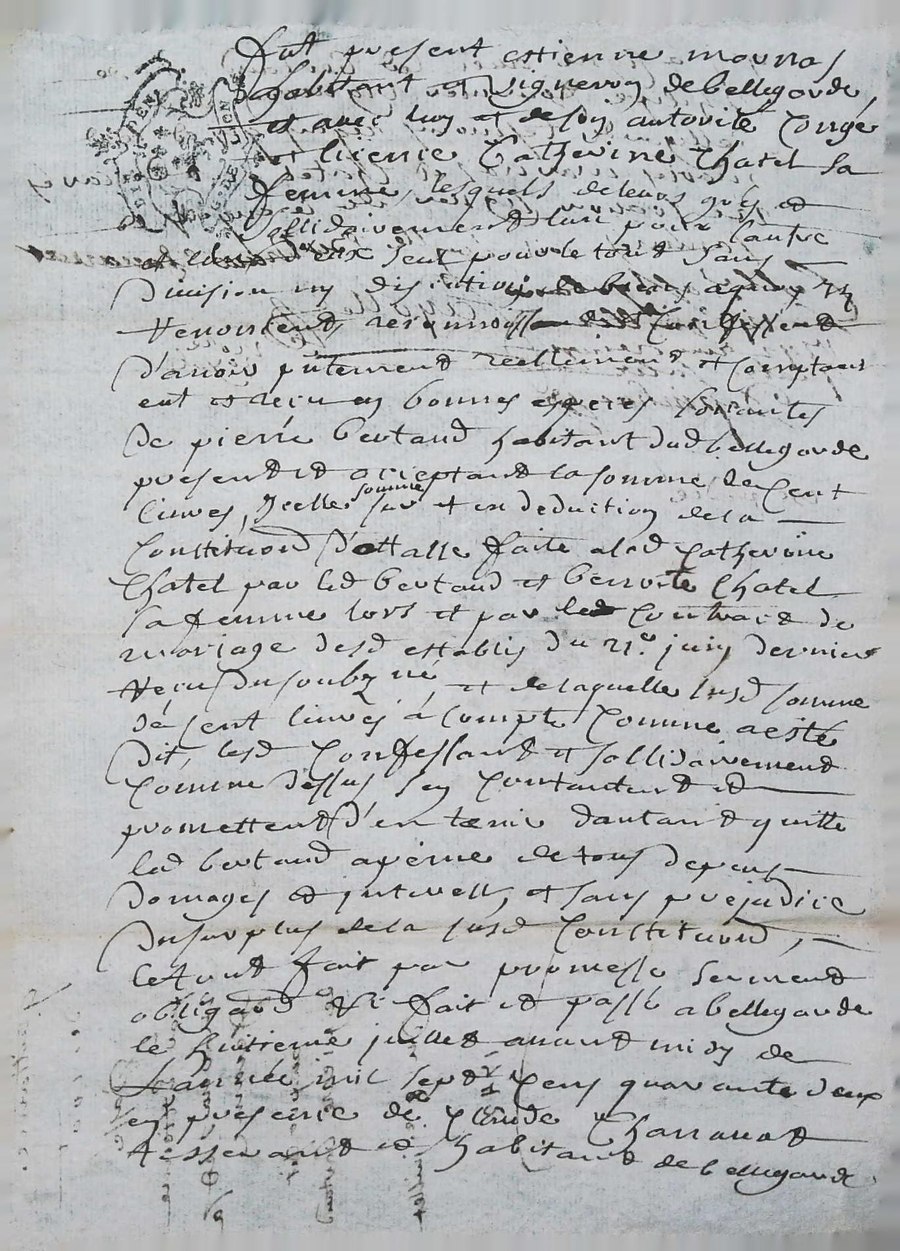 fut present estienne mournas
habitant et vigneron de bellegarde
et avec luy et de son autorité congé
et licence Catherine Chatel sa
femme, lesquels de leurs grés et
sollidairement l'un pour lautre
et eux seul pour le tout sans
division ny discution de biens a quoy ils
renoncent reconnoissent et confessent
d'avoir pntement reellement et comptant
eut et recu en bonnes especes
de pierre bertaud habitant dud bellegarde
present et acceptant la somme de cent
livres, Jcelle somme sur et en deduction de la
Constituaon d'ott faite a lad Catherine
Chatel par led bertaud et benroite Chatel
sa femme lors et par le Contract de
mariage desd establis du 21e juin dernier
recu du soubzné, et de laquelle susd somme
de cent livres a compte comme a esté
dit, lesd confessant et sollidairement
comme dessus s'en contentent et
promettent d'en tenir dautant quitte
led bertaud a peine de tous depens
domages et interests, et sans prejudice
du surplus de la susd Constituaon,
le tout fait par promesse serment
obligaon &c fait et passé a bellegarde
le huitieme juillet avant midy de
Lannée mil sept cens quarante deux
en presence de Claude Charranat
tisserand et habitant de bellegarde